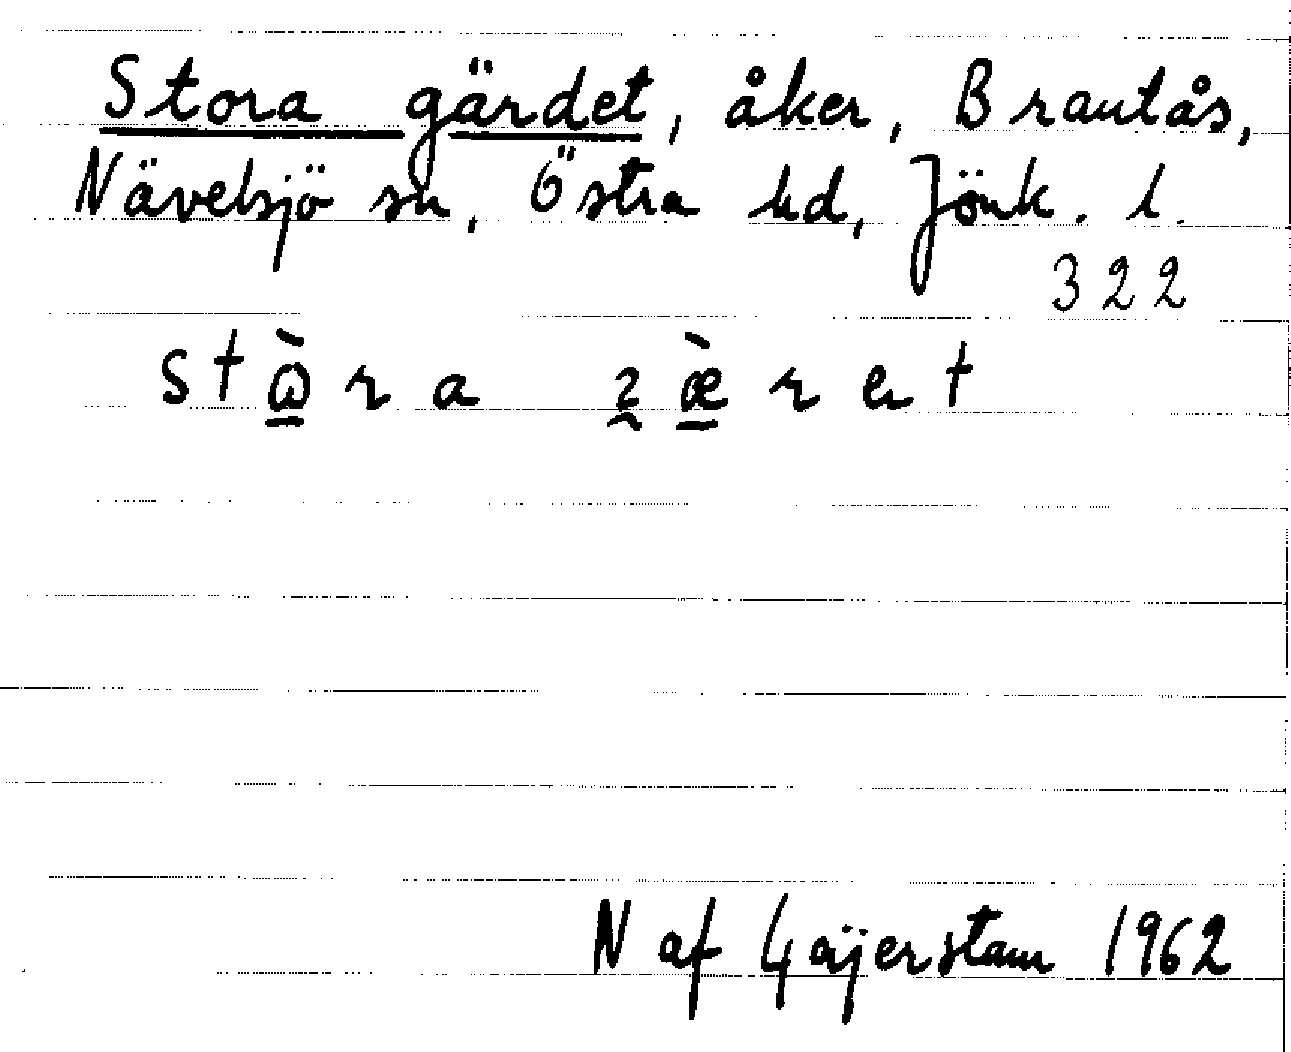 Stora gärdet, åker, Brantås,
Nävelsjö sn, Östra hd, Jönk. l.
322
N af Geijerstam 1962